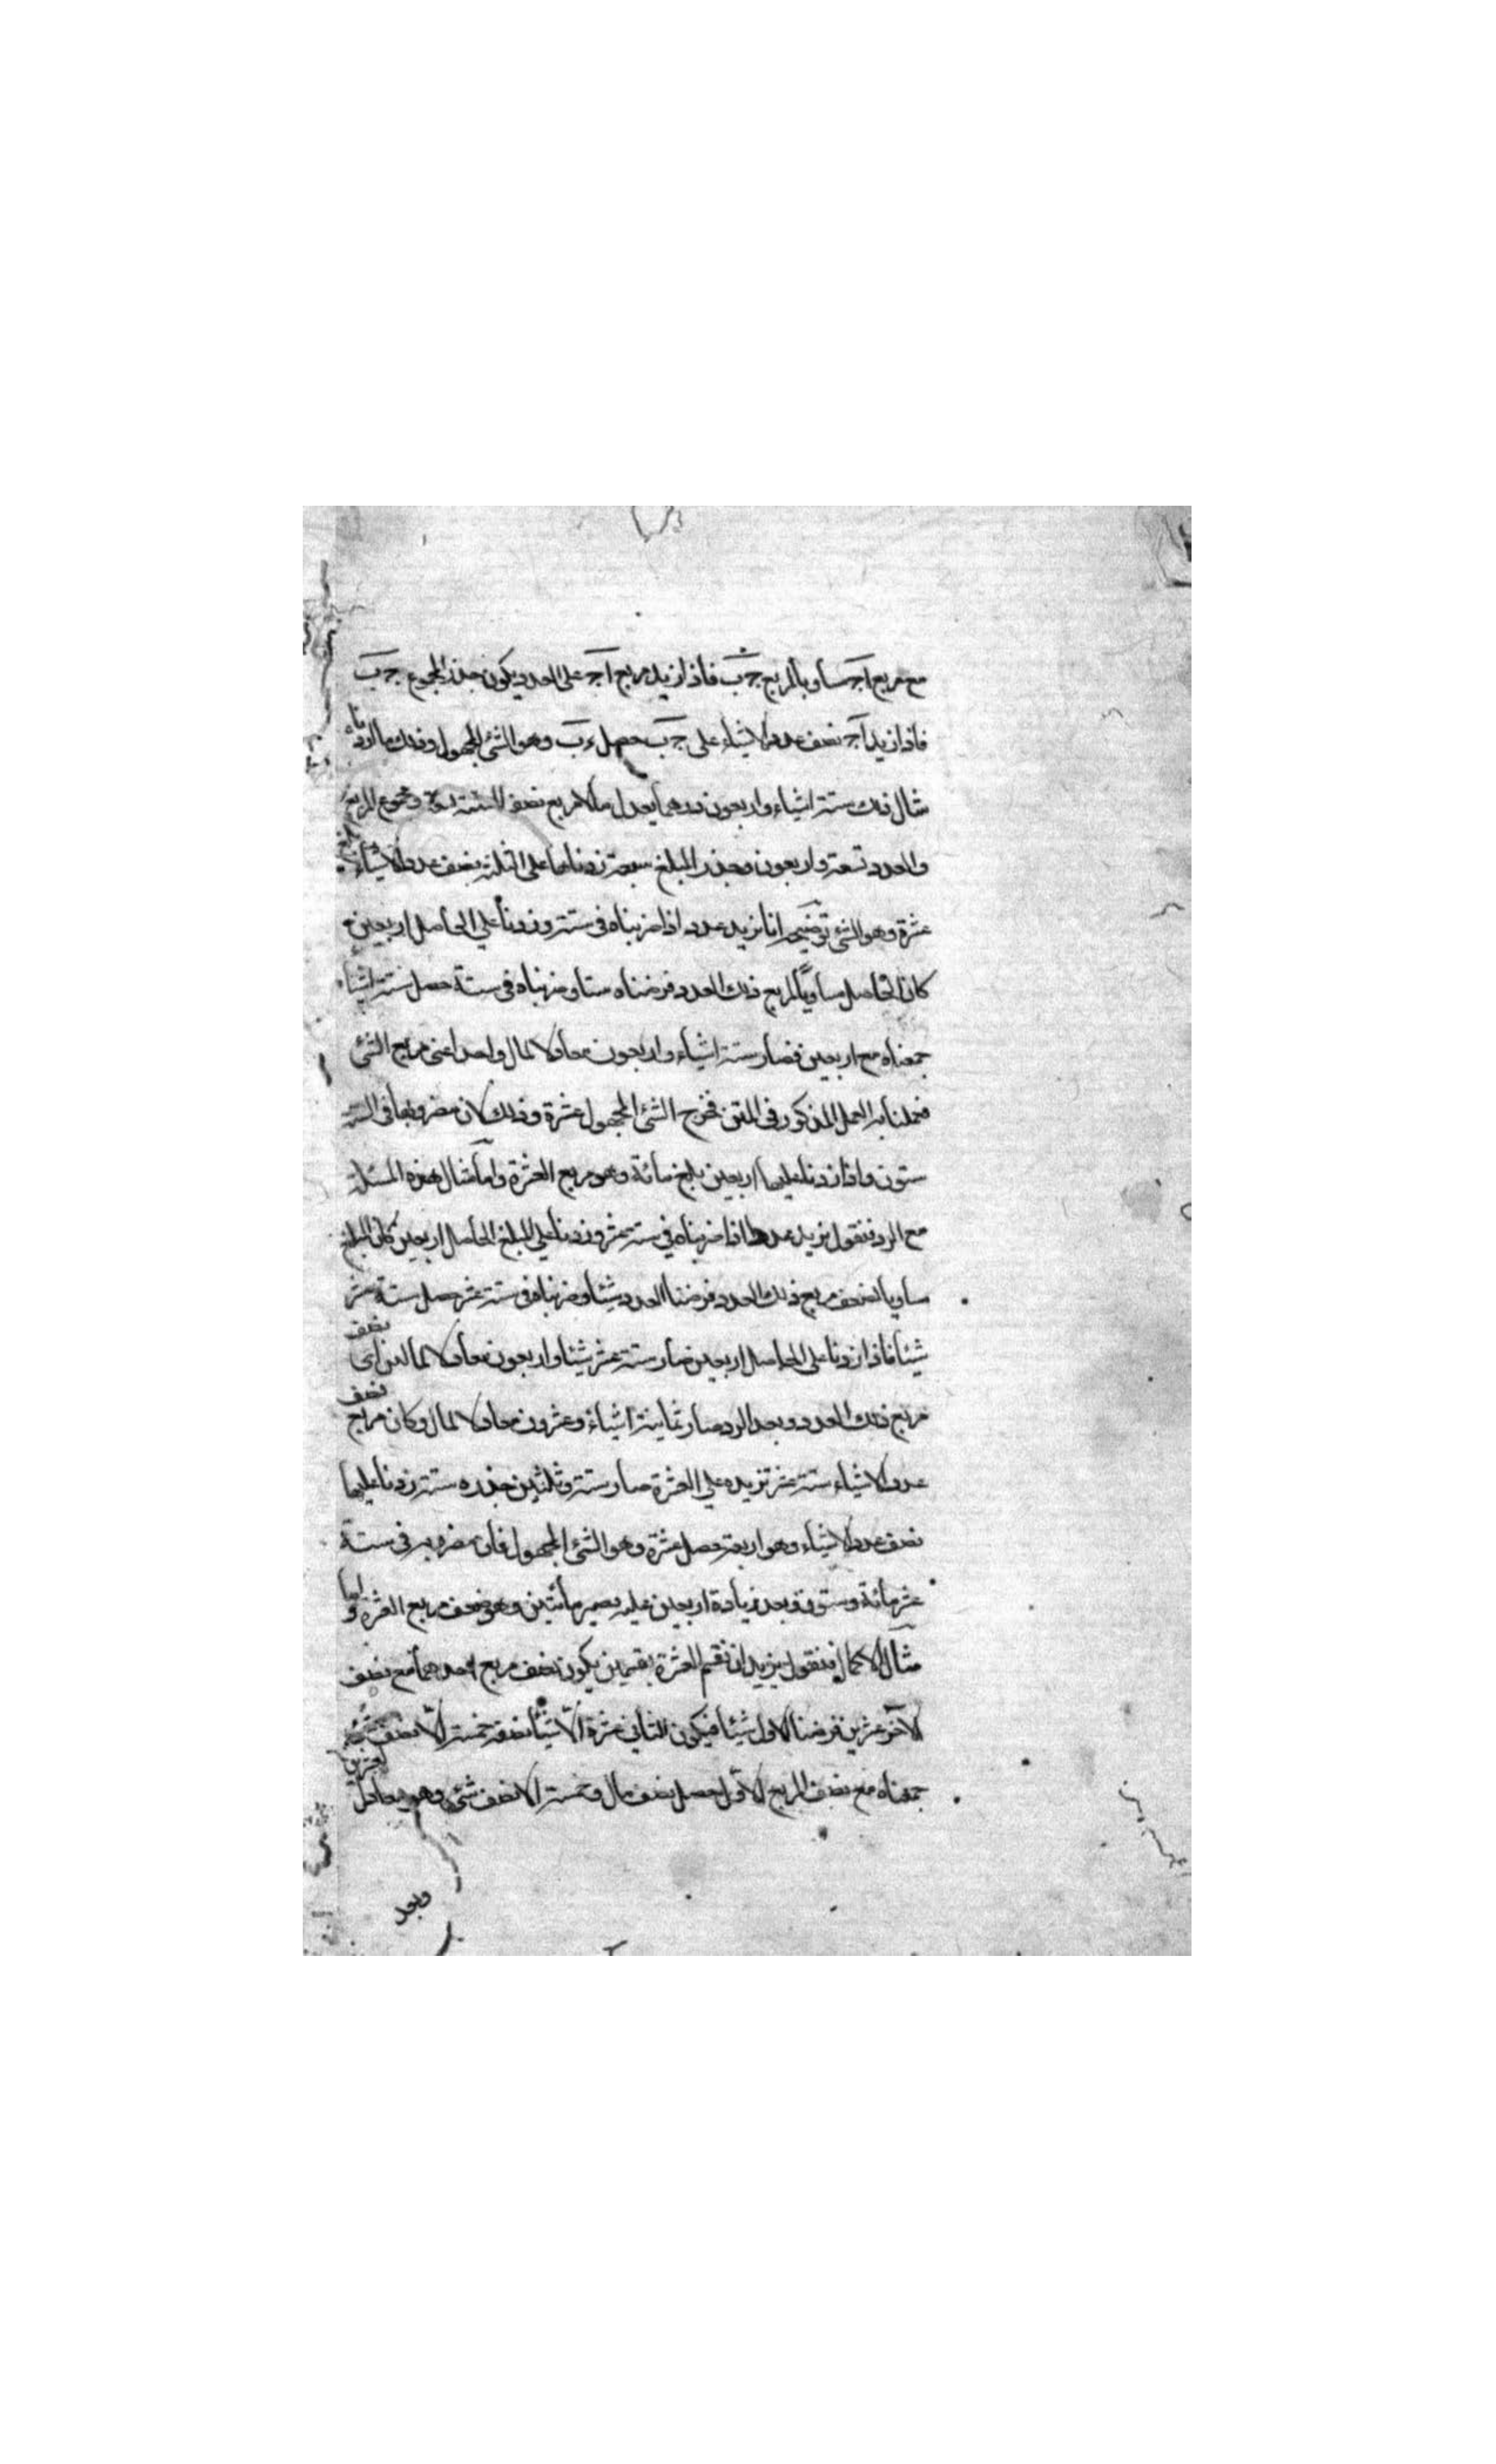 مع مربع اجـ مساويا لمربع جـب فاذا زيد مربع اجـ على العدد يكون جذر المجموع جـب
فاذا زيد اجـ نصف عدد الاشياء على جـب حصل ءب وهو الشئ المجهول وذلك ما اردناه
مثال ذلك ستة اشياء واربعون درهما يعدل مالا مربع نصف الستة تسعة ومجموع المربع
والعدد تسعة واربعون وجذر المبلغ سبعة زدناها على الثلثة نصف عدد الاشياء بلغ
عشرة وهو الشئ توضيحه انا نريد عدد اذا ضربناه فى ستة وزدنا على الحاصل اربعين
كان الحاصل مساويا لمربع ذلك العدد فرضناه ستا وضربناه فى ستة حصل ستة اشياء
جمعناه مع اربعين فصار ستة اشياء واربعون معادلا لمال واحد اعنى مربع الشئ
فعملنا به العمل المذكور فى المتن فخرج الشئ المجهول عشرة وذلك لان مضروبها فى الستة
ستون واذا زدنا عليها اربعين بلغ مائة وهو مربع العشرة واما مثال هذه المسئلة
مع الرد فنقول نريد عددا اذا ضربناه في ستة عشر وزدنا على المبلغ الحاصل اربعين كان المبلغ
مساويا لضعف مربع ذلك العدد فرضنا العدد شيئا وضربناه فى ستة عشر حصل ستة عشر
شيئا فاذا زدنا على الحاصل اربعين صار ستة عشر شيئا واربعون معادلا لمالين اى ضعف
مربع ذلك العدد وبعد الرد صار ثمانية اشياء وعشرون معادلا لمال وكان مربع نصف
عدد الاشياء ستة عشر تزيده على العشرة صار ستة وثلثين جذره ستة زدنا عليها
نصف عدد الاشياء وهو اربعة حصل عشرة وهو الشئ المجهول فان مضروبه فى ستة
عشر مائة وستون وبعد زيادة اربعين عليه يصير مأئتين وهو ضعف مربع العشرة واما
مثال الاكمال فنقول نريد ان نقسم العشرة بقسمين يكون نصف مربع احدهما مع نصف
الآخر عشرين فرضنا الاول شيئا فيكون الثانى عشرة الّا شيئا نصفه خمسة الّا نصف شئ
جمعناه مع نصف المربع الاول حصل نصف مال وخمسة الا نصف شئ وهو يعادل لعشرين
وبعد